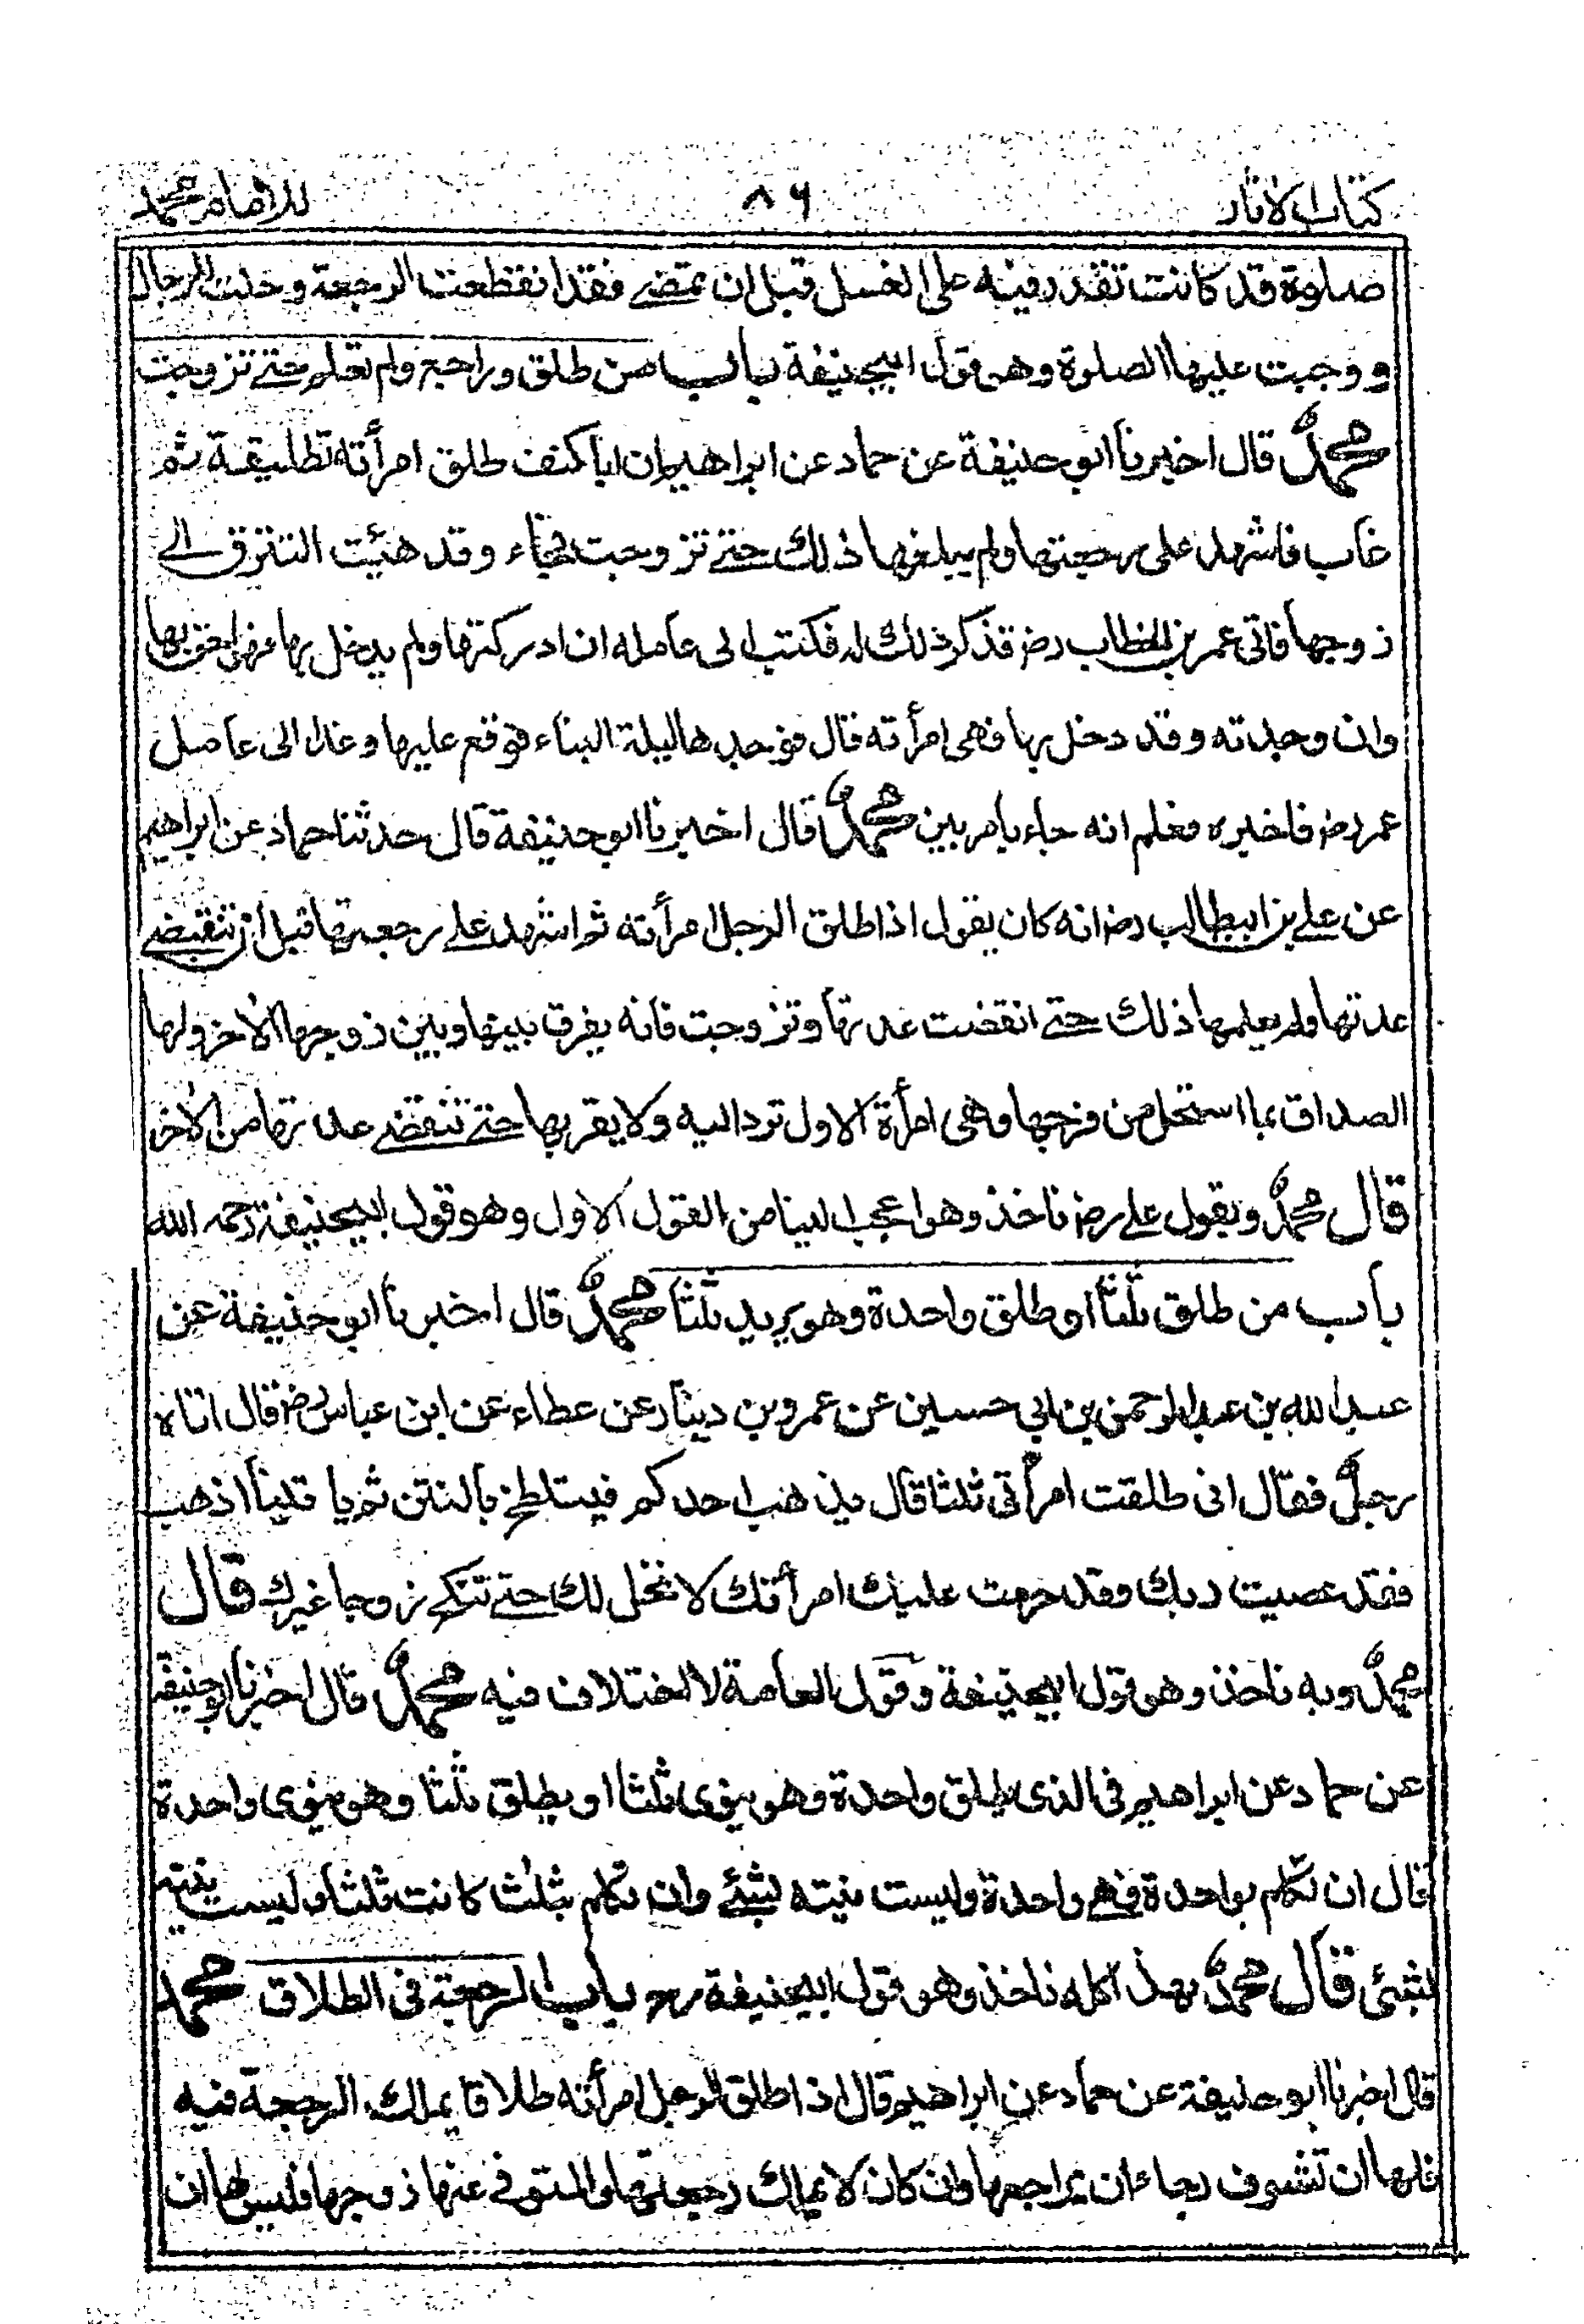 كتاب الاثار ٨٦ للامام محمد
صلوة قد كانت تقدر فيه على الغسل قبل ان تمضے فقد انقطعت الرجعة وحلت للرجال
ووجبت عليها الصلوة وهو قول ابيحنيفة باب من طلق وراجع ولم تعلم حتے تزوجت
محمدؒ قال اخبرنا ابو حنيفة عن حماد عن ابراهيم ان ابا كنف طلق امرأته تطليقة ثم
غاب فاشهد على رجعتها ولم يبلغها ذلك حتے تزوجت فجاء وقد هيئت لتزف الے
زوجها فاتى عمر بن الخطاب رضـ فذكر ذلك له فكتب الى عامله ان ادركتها ولم يدخل بها فهو احق بها
وان وجدته وقد دخل بها فهى امرأته قال فوجدها ليلة البناء فوقع عليها وغدا الى عامل
عمر رضـ فاخبره فعلم انه جاء بامر بين محمدؒ قال اخبرنا ابو حنيفة قال حدثنا حماد عن ابراهيم
عن علے بن ابيطالب رضـ انه كان يقول اذا طلق الرجل امرأته ثم اشهد علے رجعتها قبل ان تنقضے
عدتها ولم يعلمها ذلك حتے انقضت عدتها وتزوجت فانه يفرق بينها وبين زوجها الاخر ولها
الصداق بما استحل من فرجها وهى امرأة الاول ترد اليه ولا يقربها حتے تنقضے عدتها من الاخر
قال محمدؒ وبقول علے رضـ ناخذ وهو اعجب الينا من القول الاول وهو قول ابيحنيفة رحمه الله
باب من طلق ثلثا او طلق واحدة وهو يريد ثلثا محمدؒ قال اخبرنا ابو حنيفة عن
عبد الله بن عبد الرحمن بن ابى حسين عن عمرو بن دينار عن عطاء عن ابن عباس رضـ قال اتاه
رجل فقال انى طلقت امرأتى ثلثا قال يذهب احدكم فيتلطخ بالنتن ثم ياتينا اذهب
فقد عصيت ربك وقد حرمت عليك امرأتك لا تحل لك حتے تنكح زوجا غيرك قال
محمدؒ وبه ناخذ وهو قول ابيحنيفة وقول العامة لا اختلاف فيه محمدؒ قال اخبرنا ابو حنيفة
عن حماد عن ابراهيم فى الذى يطلق واحدة وهو ينوى ثلثا او يطلق ثلثا وهو ينوى واحدة
قال ان تكلم بواحدة فهے واحدة وليست نيته بشئے وان تكلم بثلث كانت ثلثا وليست نيته
بشئى قال محمدؒ بهذا كله ناخذ وهو قول ابيحنيفة رحـ باب الرجعة فى الطلاق محمد
قال اخبرنا ابو حنيفة عن حماد عن ابراهيم قال اذا طلق الرجل امرأته طلاقا يملك الرجعة فيه
فلها ان تشوف رجاء ان يراجعها وان كان لا يملك رجعتها والمتوفے عنها زوجها فليس لها ان